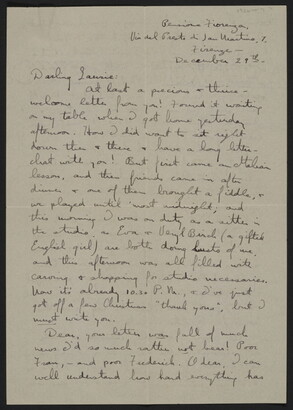 Pensione Fiorenza,
Via del Presto di San Martino, 2.
Firenze —
December 29th.
Darling Laurie:
At last a precious & thrice-
welcome letter from you! Found it waiting
on my table when I got home yesterday
afternoon. How I did want to set right
down then & there & have a long letter-
chat with you! But just came in Italian
lesson, and then friends came in after
dinner & one of them brought a fiddle, &
we played until 'most midnight; and
this morning I was on duty as a sitter in
the studio, as Eva & Birch (a gifted
English girl) are both doing busts of me,
and this afternoon was all filled with
carving & shopping for studio necessaries.
Now it's already 10.20 P.M., & I've just
got off a few Christmas "thank yous", but I
must write you.
Dear, your letter was full of much
news I'd so much rather not hear! Poor
Fran, — and poor Frederick. O dear, I can
well understand how hard everything has